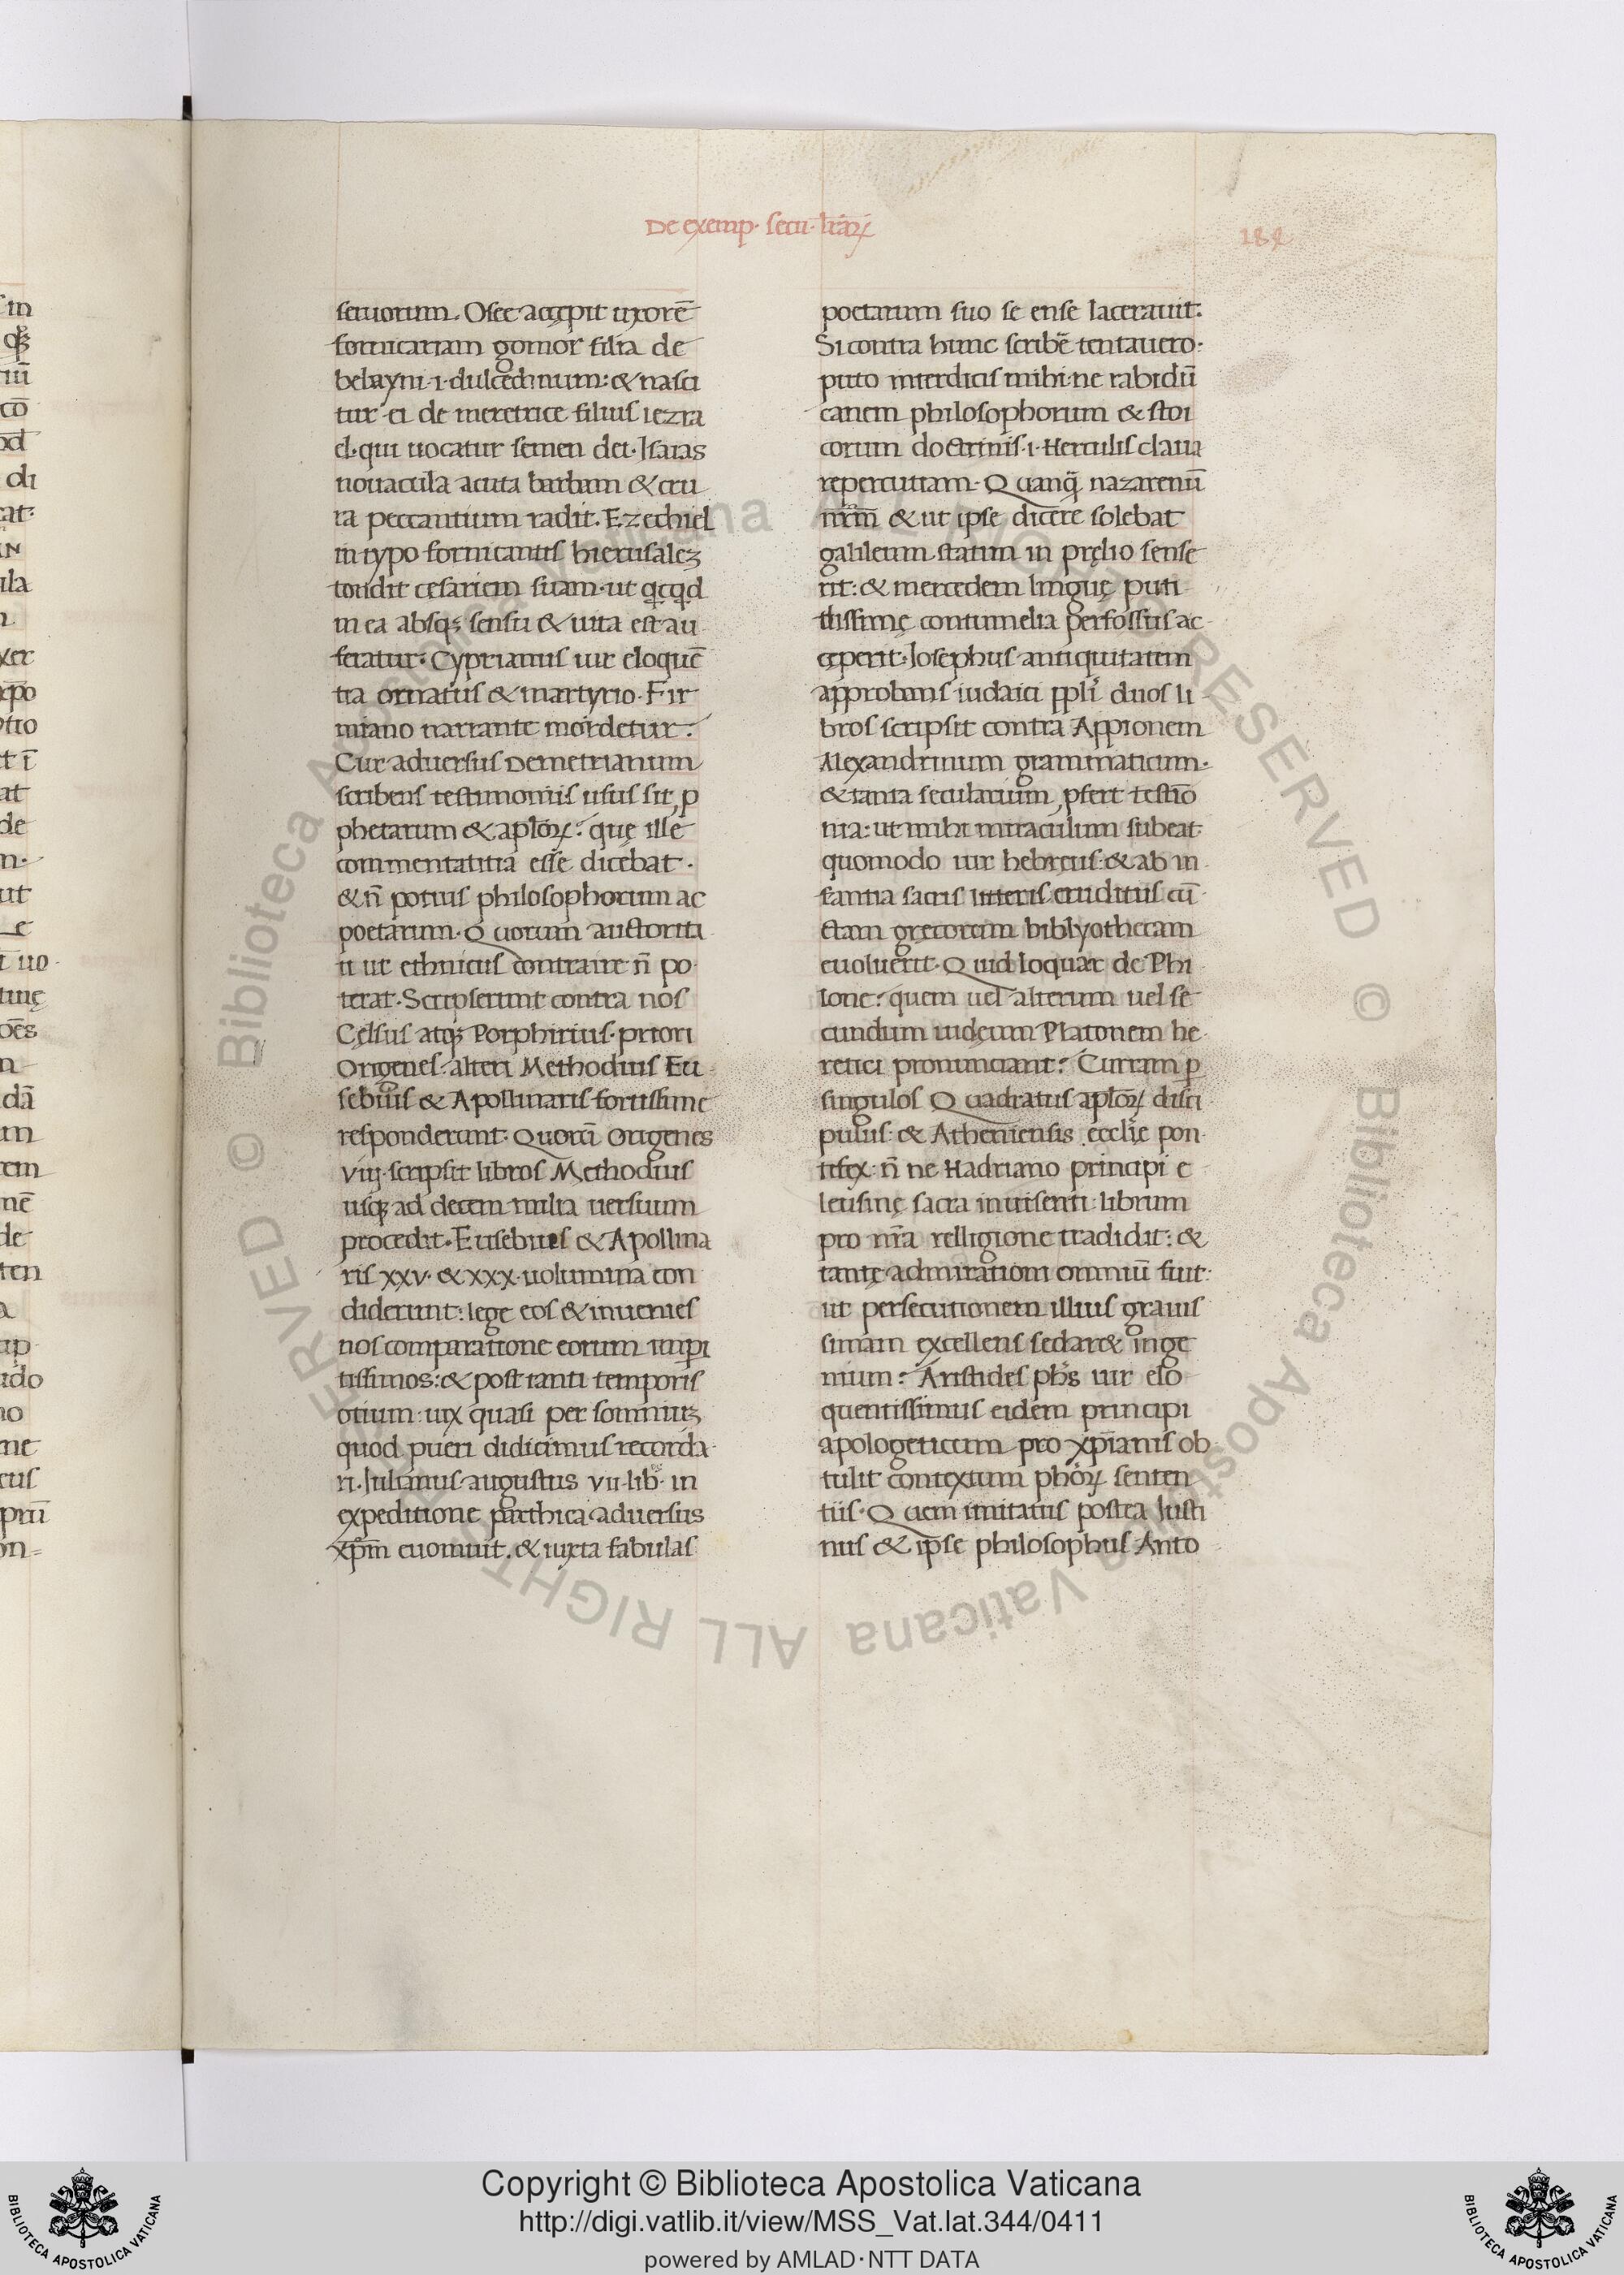 De exemp. secu. l̄rarꝝ
182
seruorum. Osee accępit uxorē
fornicariam gomor filia de
belaym .i. dulcedinum: & nasci
tur ei de meretrice filius iezra
el. qui uocatur semen dei. Isaias
nouacula acuta barbam & cru
ra peccantium radit. Ezechiel
in typo fornicantis hierusaleꝫ
tondit cesariem suam. ut qͥcqͥd
in ea absqꝫ sensu & uita est au
feratur. Cyprianus uir eloquē
tia ornatus & martyrio. Fir
miano narrante mordetur.
Cur aduersus Demetrianum
scribens testimoniis usus sit ꝓ
phetarum & apl̄oꝝ: quę ille
commentatitia esse dicebat.
& n̄ potius philosophorum ac
poetarum. Quorum auctorita
ti ut ethnicus contraire n̄ po
terat. Scripserunt contra nos
Celsus atqꝫ Porphirius. priori
Origenes: alteri Methodius Eu
sebius & Apollinaris fortissime
responderunt. Quoꝝ Origenes
viij. scripsit libros Methodius
usqꝫ ad decem milia uersuum
procedit. Eusebius & Apollina
ris xxv. & xxx. uolumina con
diderunt: lege eos & inuenies
nos comparatione eorum impi
tissimos: & post tanti temporis
otium: uix quasi per somniuꝫ
quod pueri didicimus recorda
ri. Iulianus augustus vii. lib. in
expeditione parthica aduersus
xp̄m euomuit. & iuxta fabulas
poetarum suo se ense lacerauit.
Si contra hunc scribē tentauero.
puto interdicis mihi. ne rabidū
canem philosophorum & stoi
corum doctrinis .i. Herculis claua
repercutiam. Quanq̄ nazarenū
nr̄m & ut ipse dicere solebat
galileum statim in pręlio sense
rit: & mercedem linguę puti
dissimę contumelia perfossus ac
cęperit. Iosephus antiquitatem
approbans iudaici ppl̄i duos li
bros scripsit contra Appionem
Alexandrinum grammaticum.
& tanta secularium ꝓfert testīo
nia: ut mihi miraculum subeat
quomodo uir hebręus: & ab in
fantia sacris litteris eruditus cū
ctam gręcorum biblyothecam
euoluerit. Quid loquar de Phi
lone: quem uel alterum uel se
cundum iudęum Platonem he
retici pronunciant: Curram ꝑ
singulos Quadratus apl̄oꝝ disci
pulus: & Atheniensis eccl̄ie pon
tifex: n̄ ne Hadriano principi e
leusinę sacra inuisenti: librum
pro nr̄a relligione tradidit: &
tantę admirationi omniū fuit:
ut persecutionem illius grauis
simam excellens sedar& inge
nium: Aristides ph̄s uir elo
quentissimus eidem principi
apologeticum pro xp̄ianis ob
tulit contextum ph̄oꝝ senten
tiis. Quem imitatus postea Iusti
nus & ipse philosophus Anto
Copyright © Biblioteca Apostolica Vaticana
http://digi.vatlib.it/view/MSS_Vat.lat.344/0411
powered by AMLAD·NTT DATA